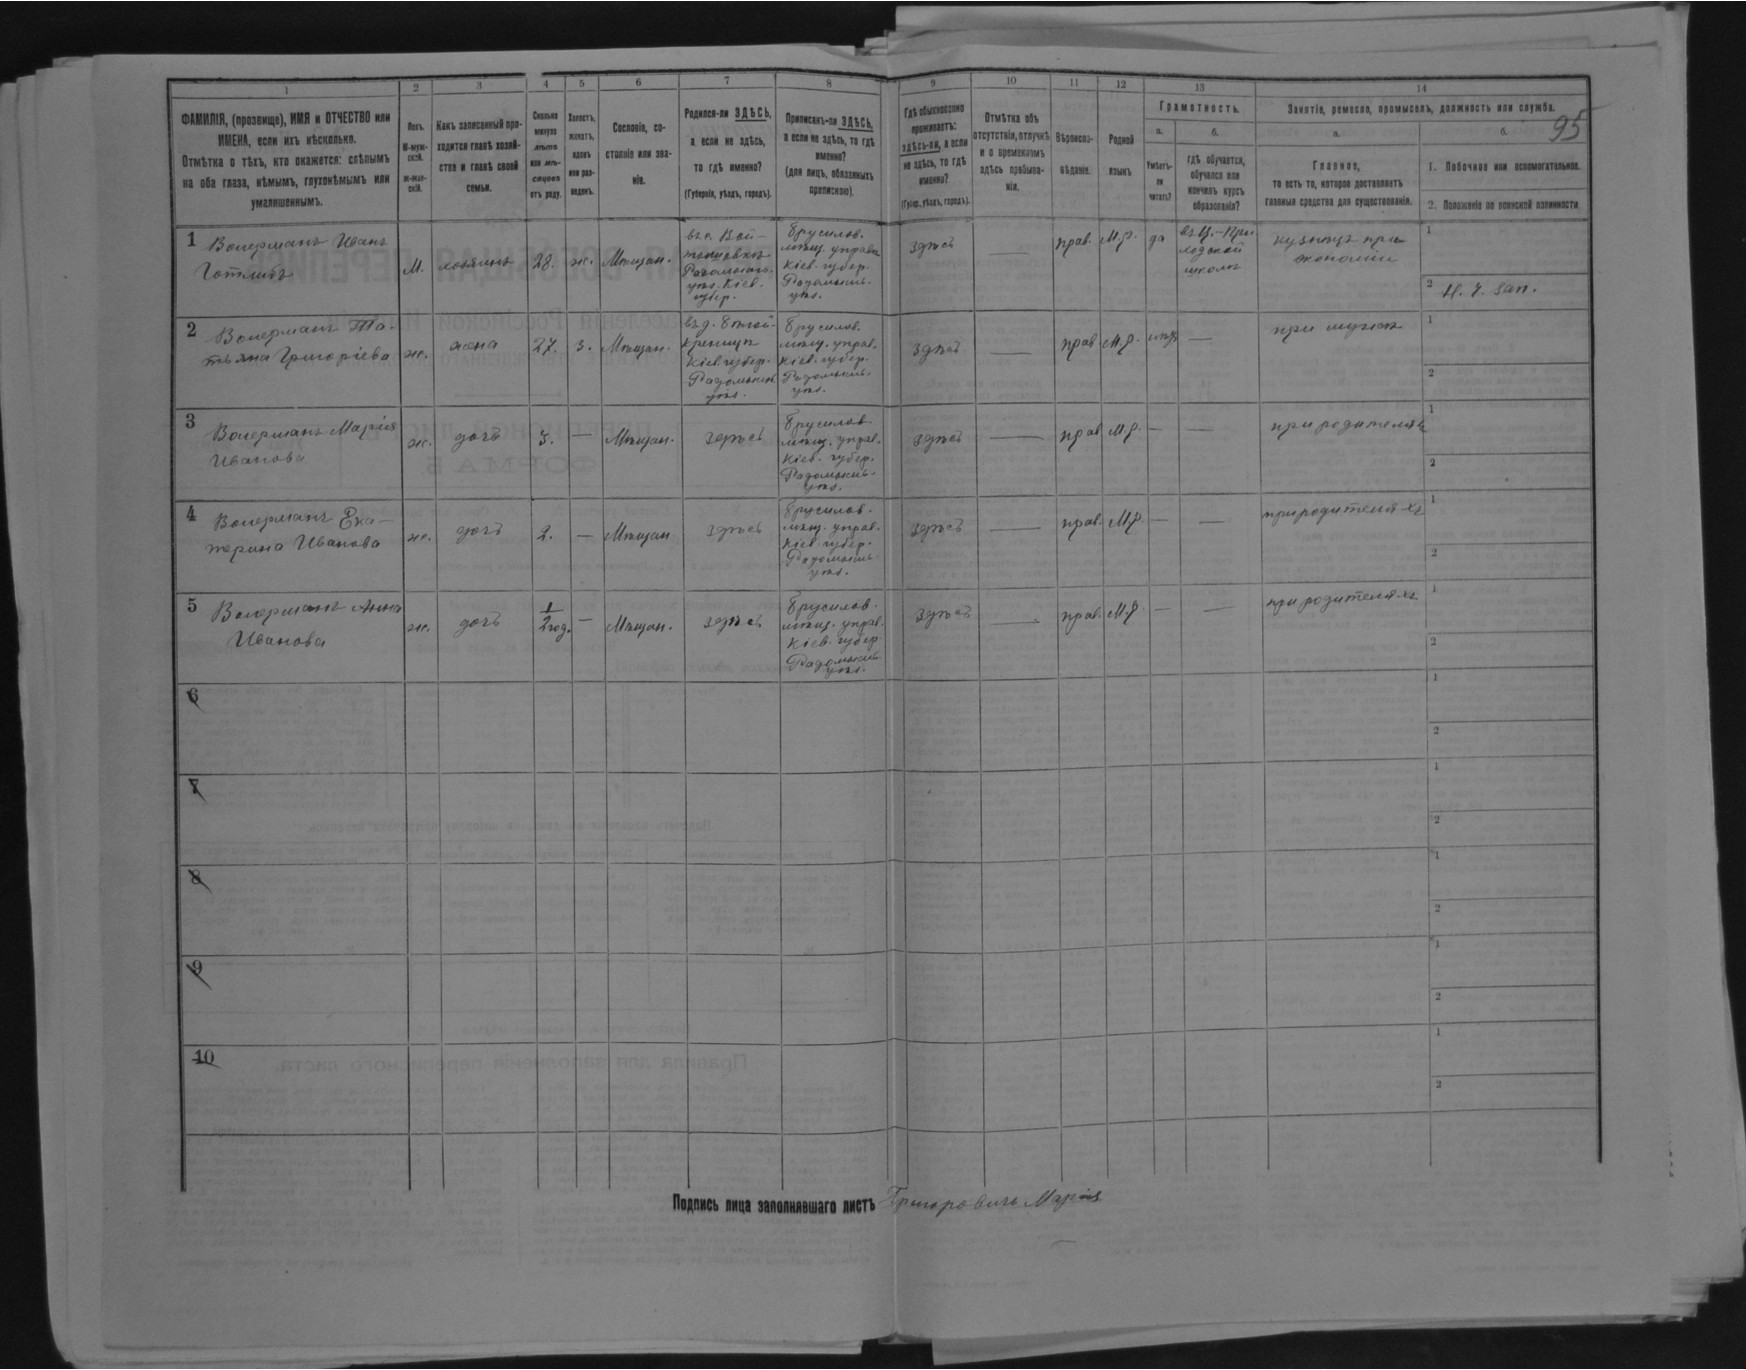 95
1 2 3 4 5 6 7 8 9 10 11 12 13 14
ФАМИЛІЯ, (прозвище), ИМЯ и ОТЧЕСТВО или
ИМЕНА, если ихъ нѣсколько.
Отмѣтка о тѣхъ, кто окажется: слѣпымъ
на оба глаза, нѣмымъ, глухонѣмымъ или
умалишеннымъ.
Полъ.
М-муж-
ской.
Ж-жен-
скій.
Какъ записанный про-
ходится главѣ хозяй-
ства и главѣ своей
семьи.
Сколько
минуло
лѣтъ
или мѣ-
сяцевъ
отъ роду.
Холостъ,
женатъ,
вдовъ
или раз-
веденъ.
Сословіе, со-
стояніе или зва-
ніе.
Родился-ли ЗДѢСЬ,
а если не здѣсь,
то гдѣ именно?
(Губернія, уѣздъ, городъ).
Приписанъ-ли ЗДѢСЬ,
а если не здѣсь, то гдѣ
именно?
(для лицъ, обязанныхъ
припискою).
Гдѣ обыкновенно
проживаетъ:
здѣсь-ли, а если
не здѣсь, то гдѣ
именно?
(Губер., уѣздъ, городъ).
Отмѣтка объ
отсутствіи, отлучкѣ
и о временномъ
здѣсь пребыва-
ніи.
Вѣроиспо-
вѣданіе.
Родной
языкъ.
Грамотность.
а.
Умѣетъ-
ли
читать?
б.
гдѣ обучается,
обучался или
кончилъ курсъ
образованія?
Занятіе, ремесло, промыселъ, должность или служба.
а.
Главное,
то есть то, которое доставляетъ
главныя средства для существованія.
б.
1. Побочное или вспомогательное.
2. Положеніе по воинской повинности
1 Волерманъ Иванъ
Готлибъ
М.
хозяинъ
28.
ж.
Мѣщан.
въ с. Вой-
Радомысл.
уѣз. Кіев.
губер.
Брусилов.
мѣщ. управ.
Кіев. губер.
Радомысл.
уѣз.
здѣсь
—
прав.
М.р.
да
въ Ц.-При
ходской
школѣ
кузнецъ при
экономіи
1
2 Н. Ч. зап.
2 Волерманъ Та-
тьяна Григоріева
ж.
жена
27.
з.
Мѣщан.
Кіев. губер.
Радомысл.
уѣз.
Брусилов.
мѣщ. управ.
Кіев. губер.
Радомысл.
уѣз.
здѣсь
—
прав
М.р.
нѣтъ
—
при мужѣ
1
2
3 Волерманъ Марія
Иванова
ж.
дочь
3.
—
Мѣщан.
здѣсь
Брусилов
мѣщ. управ.
Кіев. губер.
Радомысл.
уѣз.
здѣсь
—
прав
М.р.
—
—
при родителяхъ
1
2
4 Волерманъ Ека-
терина Иванова
ж.
дочь
2.
—
Мѣщан
здѣсь
Брусилов.
мѣщ. управ.
Кіев. губер.
Радомысл.
уѣз.
здѣсь
—
прав.
М.р.
—
—
при родителяхъ
1
2
5 Волерманъ Анна
Иванова
ж.
дочь
1/2 год.
—
Мѣщан.
здѣсь
Брусилов.
мѣщ. управ.
Кіев. губер.
Радомысл.
уѣз.
здѣсь
—
прав.
М.р.
—
—
при родителяхъ
1
2
6
1
2
7
1
2
8
1
2
9
1
2
10
1
2
Подпись лица заполнявшаго листъ Григоровичъ Марія